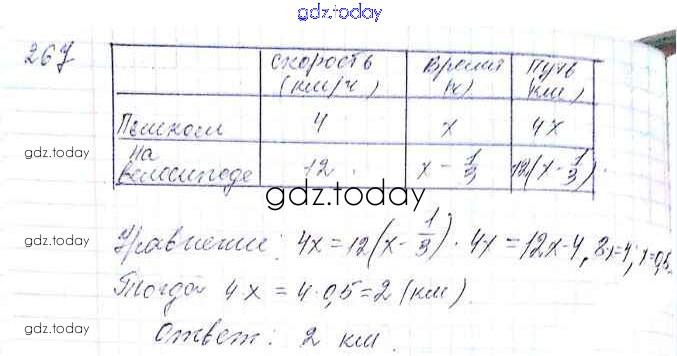 gdz.today
267
скорость (км/ч) Время (ч) Путь (км)
Пешком 4 x 4x
на велосипеде 12 x - 1/3 12(x - 1/3)
gdz.today
gdz.today
gdz.today
Уравнение: 4x = 12(x - 1/3). 4x = 12x - 4, 8x = 4; x = 0,5.
Тогда 4x = 4·0,5 = 2 (км)
gdz.today
gdz.today
Ответ: 2 км.
gdz.today